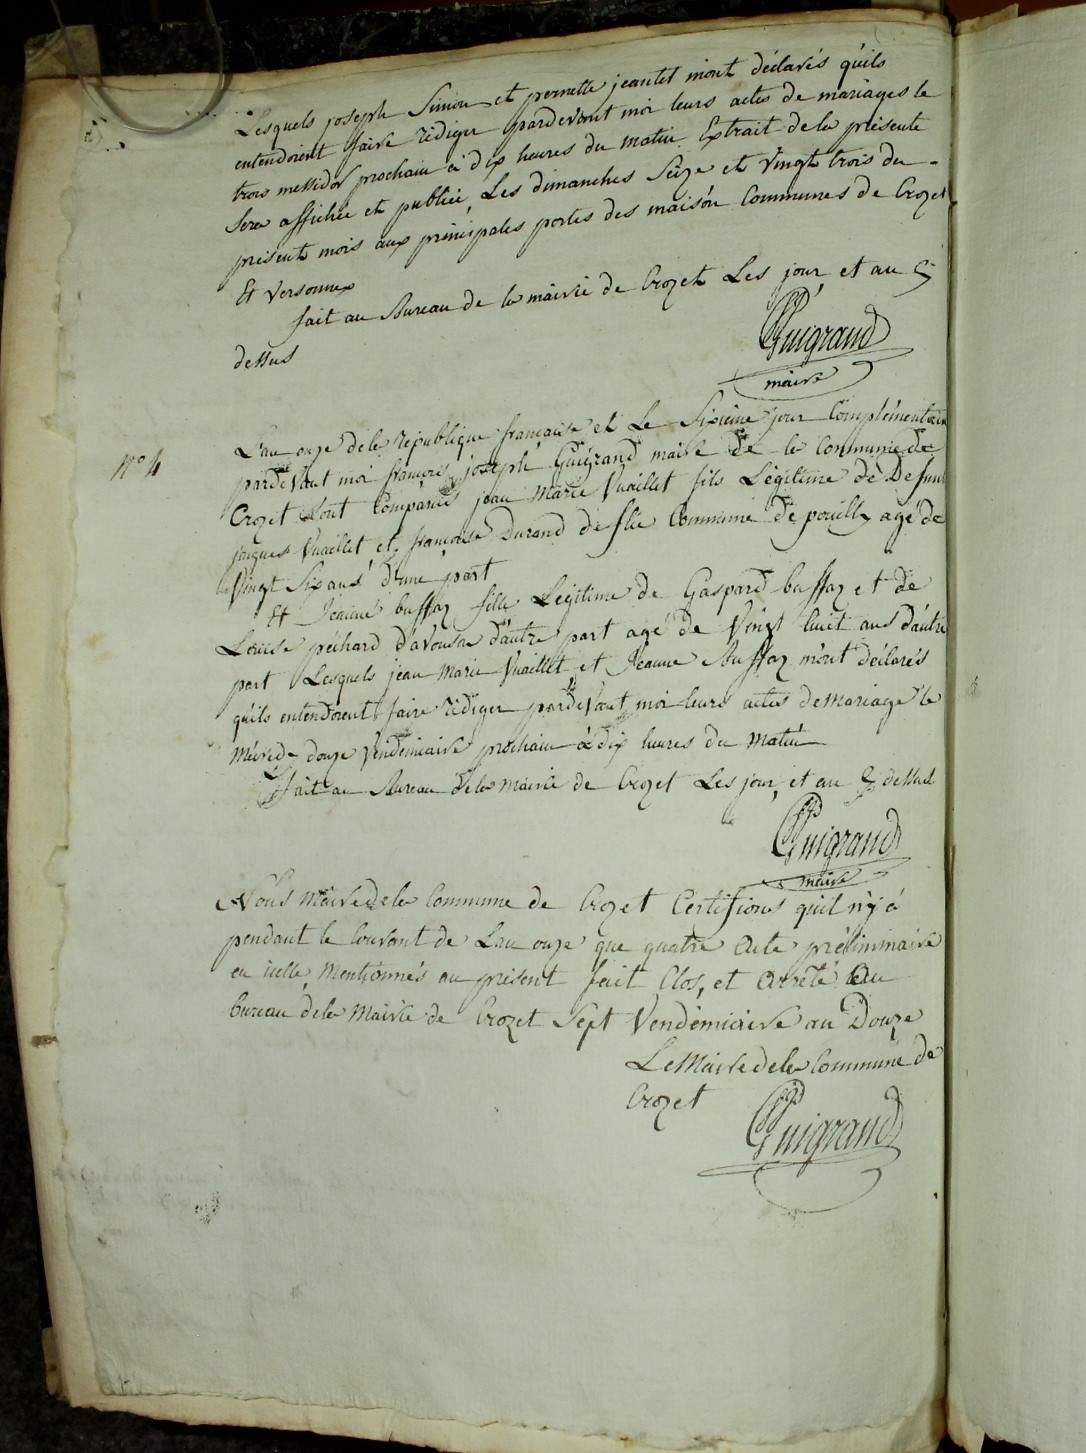 Lesquels joseph Simon et pernette jeantet m'ont déclarés qu'ils
entendoient faire rédiger pardevant moi leurs actes de mariages le
trois messidor prochain à dix heures du matin. Extrait de la présente
sera affichée et publiée, Les dimanches Seize et vingt trois du
présent mois aux principales portes des maison Communes de Crozet
Et Versonnex
fait au Bureau de la mairie de Crozet Les jour et an ci
dessus
Guigrand
maire
N° 4
L'an onze de la république française et Le Sixième jour Complémentaire
pardevant moi françois joseph Guigrand maire de la Commune de
Crozet Sont Comparus jean Marie Vuaillet fils Légitime de Defunt
jaques Vuaillet et françoise Durand de flie Commune de pouilly agé de
Vingt Six ans d'une part
Et Jeanne buffaz fille Légitime de Gaspard buffaz et de
Louise péchard d'avouson d'autre part agé de Vingt huit ans d'autre
part Lesquels jean Marie Vuaillet et Jeanne Buffaz m'ont déclarés
qu'ils entendoient faire rédiger pardevant moi leurs actes de mariage le
douze vendémiaire prochain à dix heures du matin
fait au Bureau de la mairie de Crozet Les jour et an ci dessus
Guigrand
maire
Nous Maire de la Commune de Crozet Certifions qu'il n'y à
pendant le Courant de L'an onze que quatre Acte préliminaire
en icelle Mentionnés au présent fait Clos, et Arrêté Au
bureau de la Mairie de Crozet Sept Vendémiaire an Douze
Le Maire de la Commune de
Crozet
Guigrand